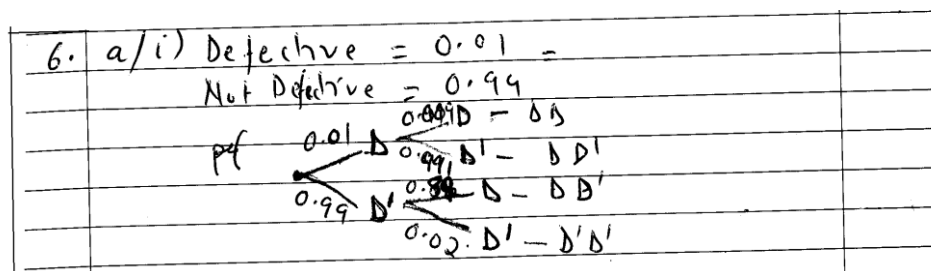 6. a/i) Defective = 0.01 =
Not Defective = 0.99
0.01 D 0.009 D - DD
0.991 D' - DD'
0.99 D' D - DD'
0.02. D' - D'D'